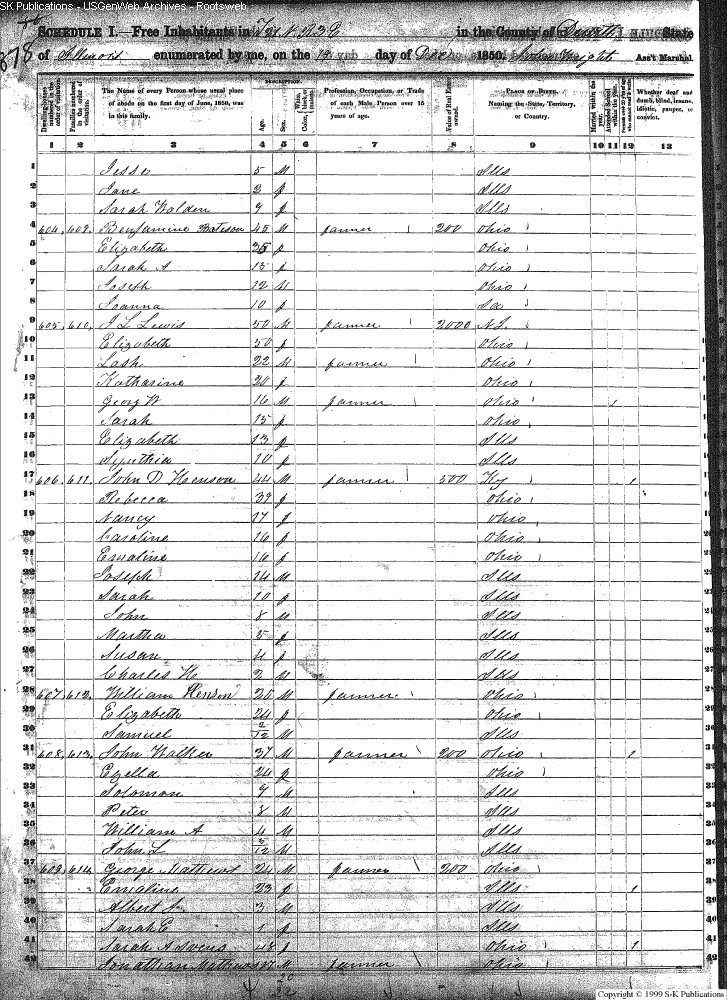 SK Publications - USGenWeb Archives - Rootsweb
878
SCHEDULE I.—Free Inhabitants in in the County of Dewitt State
of Illinois enumerated by me, on the 19 day of Dec 1850. Ass't Marshal.
Dwelling-houses numbered in the order of visitation.
Families numbered in the order of visitation.
The Name of every Person whose usual place of abode on the first day of June, 1850, was in this family.
DESCRIPTION.
Age.
Sex.
Color, White, black, or mulatto.
Profession, Occupation, or Trade of each Male Person over 15 years of age.
Value of Real Estate owned.
PLACE OF BIRTH. Naming the State, Territory, or Country.
Married within the year.
Attended School within the year.
Whether deaf and dumb, blind, insane, idiotic, pauper, or convict.
1 2 3 4 5 6 7 8 9 10 11 12 13
1 Jesse 5 M Ills
2 Jane 3 f Ills
3 Sarah Walden 9 f Ills
4 604 609 Benjamine Bateson 45 M farmer 200 Ohio
5 Elizabeth 35 f Ohio
6 Sarah A 15 f Ohio
7 Joseph 12 M Ohio
8 Joanna 10 f Ia
9 605 610 J L Lewis 50 M farmer 2000 N.J.
10 Elizabeth 50 f Ohio
11 Lash 22 M farmer Ohio
12 Katharine 20 f Ohio
13 Georg W 16 M farmer Ohio 1
14 Sarah 15 f Ohio
15 Elizabeth 13 f Ills
16 Synthia 10 f Ills
17 606 611 John D Henson 44 M farmer 500 Ky 1
18 Rebecca 39 f Ohio
19 Nancy 17 f Ohio
20 Caroline 16 f Ohio
21 Emaline 16 f Ohio
22 Joseph 14 M Ills
23 Sarah 10 f Ills
24 John 8 M Ills
25 Martha 5 f Ills
26 Susan 4 f Ills
27 Charles H 2 M Ills
28 607 612 William Henson 20 M farmer Ohio
29 Elizabeth 24 f Ohio
30 Samuel 2/12 M Ills
31 608 613 John Walker 37 M farmer 200 Ohio 1
32 Ezella 24 f Ohio
33 Solomon 9 M Ills
34 Peter 8 M Ills
35 William A 4 M Ills
36 John L 5/12 M Ills
37 609 614 George Mathews 24 M farmer 200 Ohio
38 Emaline 23 f Ills 1
39 Albert 3 M Ills
40 Sarah E 1 f Ills
41 Sarah A Owens 48 f Ohio 1
42 Jonathan Mathews 17 M farmer Ohio
Copyright © 1999 S-K Publications